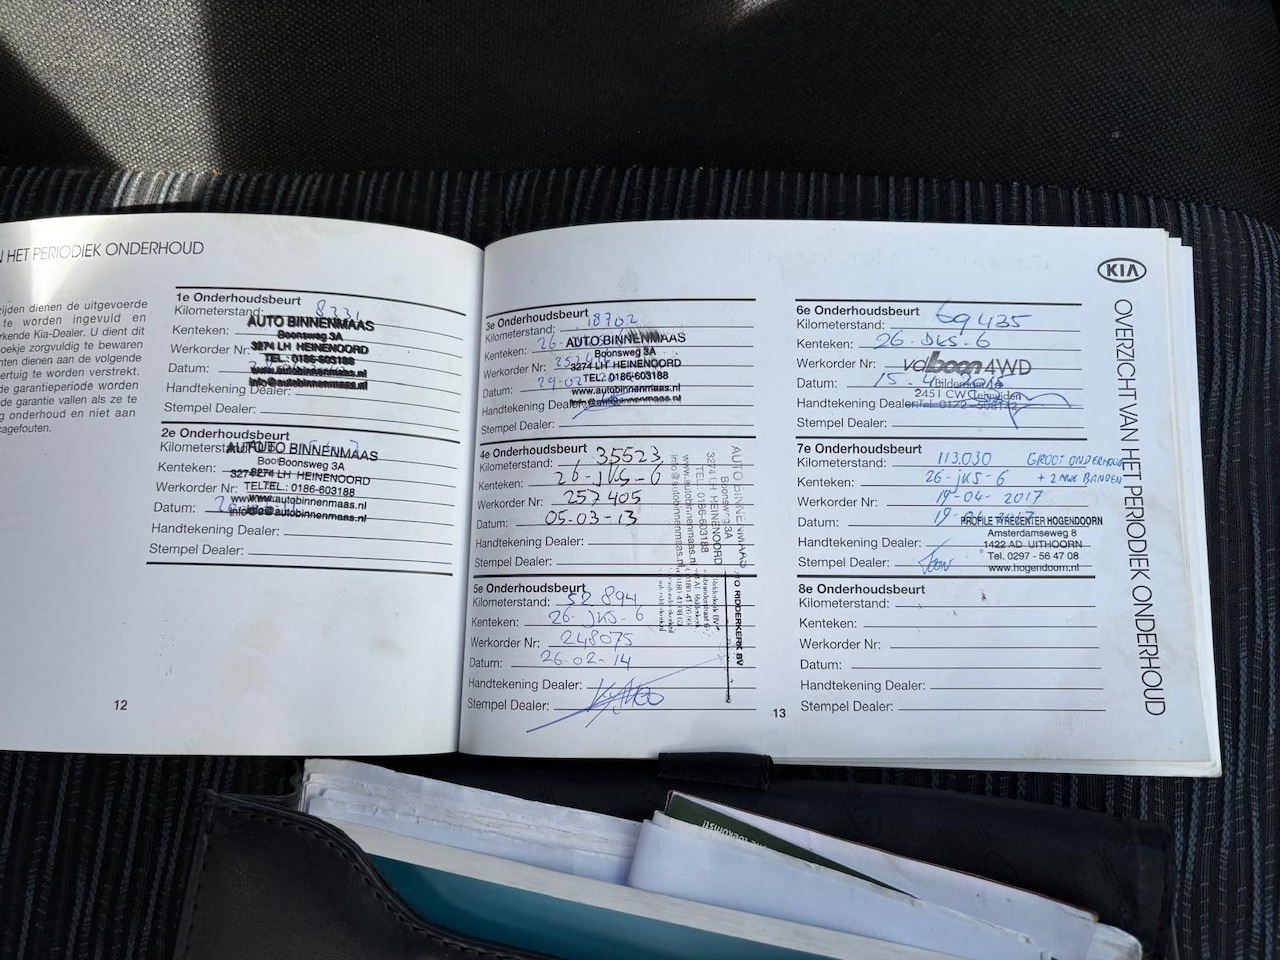 N HET PERIODIEK ONDERHOUD
zijden dienen de uitgevoerde
te worden ingevuld en
rkende Kia-Dealer. U dient dit
oekje zorgvuldig te bewaren
nten dienen aan de volgende
ertuig te worden verstrekt.
de garantieperiode worden
de garantie vallen als ze te
g onderhoud en niet aan
cagefouten.
1e Onderhoudsbeurt
Kilometerstand:
Kenteken:
Werkorder Nr:
Datum:
Handtekening Dealer:
Stempel Dealer:
AUTO BINNENMAAS
Boonsweg 3A
3274 LH HEINENOORD
TEL.: 0186-603188
www.autobinnenmaas.nl
info@autobinnenmaas.nl
2e Onderhoudsbeurt
Kilometerstand:
Kenteken:
Werkorder Nr:
Datum:
Handtekening Dealer:
Stempel Dealer:
AUTO BINNENMAAS
Boonsweg 3A
3274 LH HEINENOORD
TEL.: 0186-603188
www.autobinnenmaas.nl
info@autobinnenmaas.nl
12
3e Onderhoudsbeurt
Kilometerstand: 18702
Kenteken: 26-
Werkorder Nr:
Datum:
Handtekening Dealer:
Stempel Dealer:
AUTO BINNENMAAS
Boonsweg 3A
3274 LH HEINENOORD
TEL.: 0186-603188
www.autobinnenmaas.nl
info@autobinnenmaas.nl
4e Onderhoudsbeurt
Kilometerstand: 35523
Kenteken: 26-JKS-6
Werkorder Nr: 257405
Datum: 05-03-13
Handtekening Dealer:
Stempel Dealer:
AUTO BINNENMAAS
Boonsweg 3A
3274 LH HEINENOORD
TEL.: 0186-603188
www.autobinnenmaas.nl
info@autobinnenmaas.nl
5e Onderhoudsbeurt
Kilometerstand: 52894
Kenteken: 26-JKS-6
Werkorder Nr: 248075
Datum: 26-02-14
Handtekening Dealer:
Stempel Dealer:
RIDDERKERK BV
13
6e Onderhoudsbeurt
Kilometerstand: 69435
Kenteken: 26-JKS-6
Werkorder Nr:
Datum: 15-
Handtekening Dealer:
Stempel Dealer:
vdboon4WD
2451 CW
7e Onderhoudsbeurt
Kilometerstand: 113.030 GROOT ONDERHOUD
Kenteken: 26-JKS-6 + 2 NWE BANDEN
Werkorder Nr: 19-04-2017
Datum: 19-
Handtekening Dealer:
Stempel Dealer:
PROFILE TYRECENTER HOGENDOORN
Amsterdamseweg 8
1422 AD UITHOORN
Tel. 0297 - 56 47 08
www.hogendoorn.nl
8e Onderhoudsbeurt
Kilometerstand:
Kenteken:
Werkorder Nr:
Datum:
Handtekening Dealer:
Stempel Dealer:
KIA
OVERZICHT VAN HET PERIODIEK ONDERHOUD